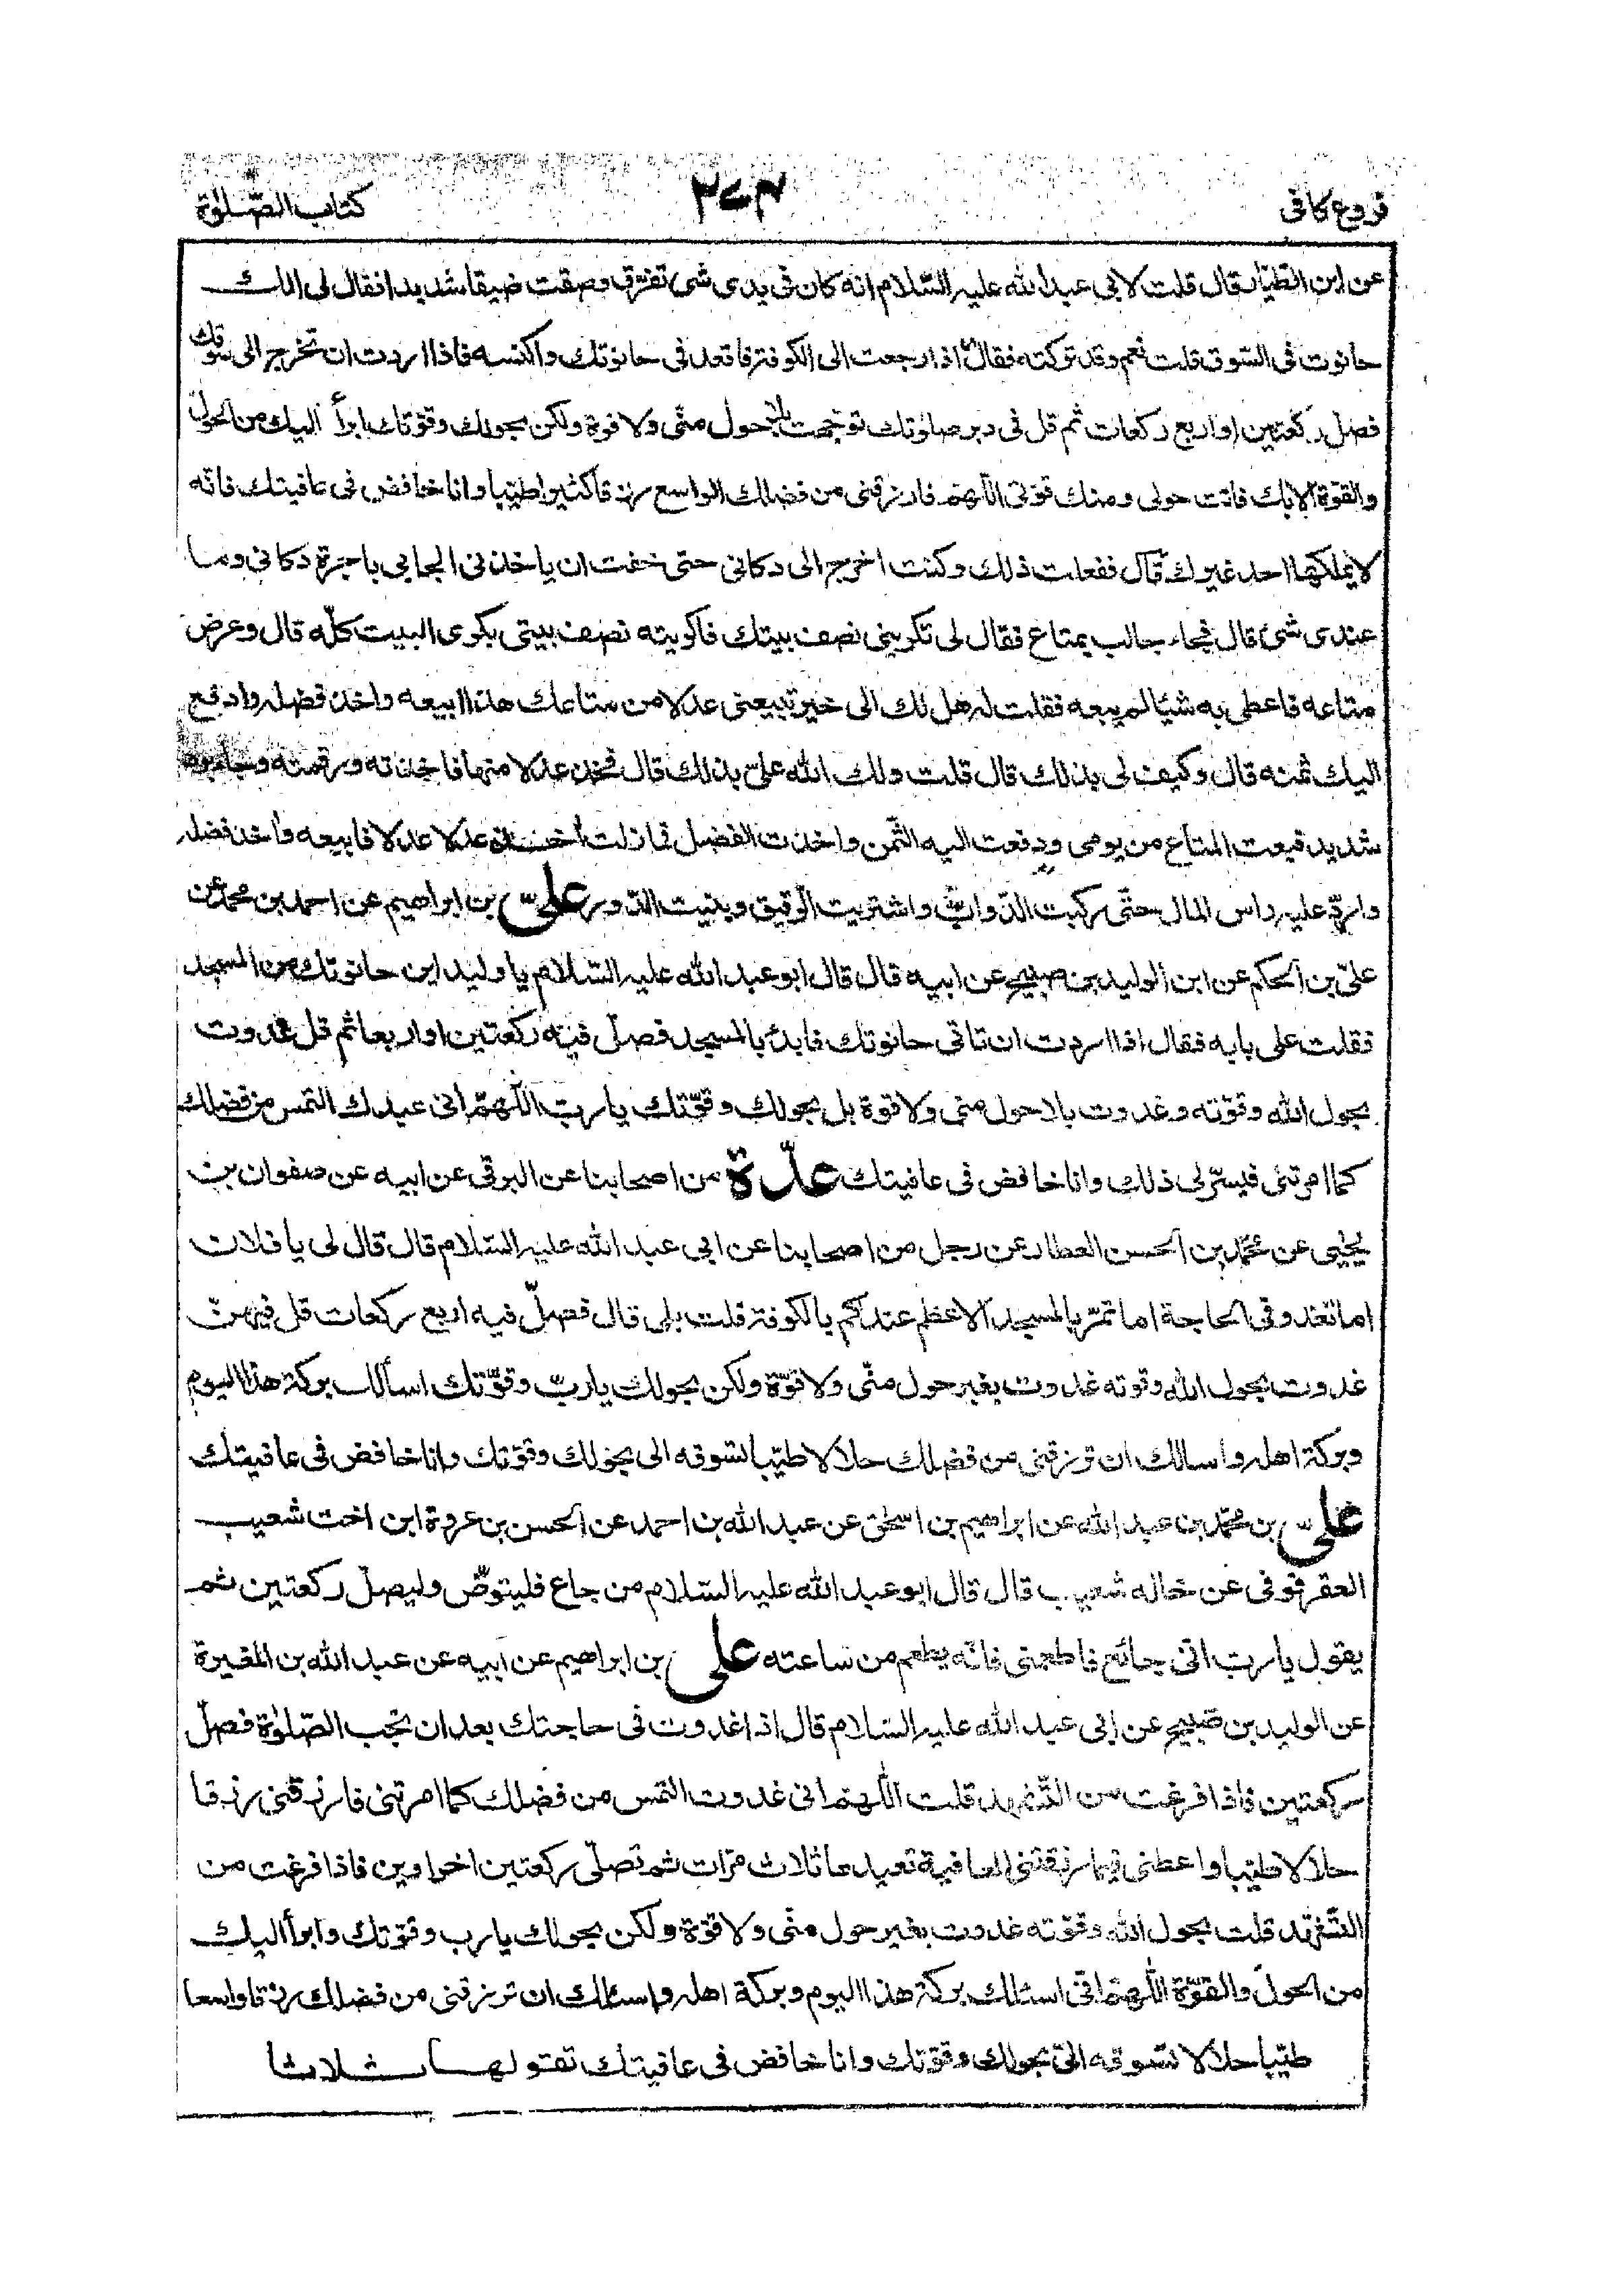 فروع كافى
٢٧٣
كتاب الصّلوة
عن ابن الطيّار قال قلت لابى عبد الله عليه السّلام انه كان فى يدى شىء تفرّق وضقت ضيقا شديدا فقال لى الك
حانوت فى السّوق قلت نعم وقد تركته فقال اذا رجعت الى الكوفة فاقعد فى حانوتك واكنسه فاذا اردت ان تخرج الى سوقك
فصلّ ركعتين او اربع ركعات ثم قل فى دبر صلوتك توجهت بلا حول منّى ولا قوة ولكن بحولك وقوّتك ابرأ اليك من الحول
والقوّة الا بك فانت حولى ومنك قوّتى اللّهمّ فارزقنى من فضلك الواسع رزقا كثيرا طيّبا وانا خافض فى عافيتك فانّه
لا يملكها احد غيرك قال ففعلت ذلك وكنت اخرج الى دكانى حتى خفت ان ياخذنى الجابى باجرة دكانى وما
عندى شئ قال فجاء جالب بمتاع فقال لى تكرينى نصف بيتك فاكريته نصف بيتى بكرى البيت كلّه قال وعرض
متاعه فاعطى به شيئا لم يبعه فقلت له هل لك الى خير تبيعنى عدلا من متاعك هذا ابيعه واخذ فضله وادفع
اليك ثمنه قال وكيف لى بذلك قال قلت ولك الله علىّ بذلك قال فخذ عدلا منها فاخذته ورقمته وجاء برد
شديد فبعت المتاع من يومى ودفعت اليه الثّمن واخذت الفضل فما زلت أخذ عدلا عدلا فابيعه وأخذ فضله
واردّ عليه راس المال حتّى ركبت الدّوابّ واشتريت الرّقيق وبنيت الدّور علىّ بن ابراهيم عن احمد بن محمد عن
علىّ بن الحكم عن ابن الوليد بن صبيح عن ابيه قال قال ابو عبد الله عليه السّلام يا وليد اين حانوتك من المسجد
فقلت على بابه فقال اذا اردت ان تاتى حانوتك فابدء بالمسجد فصلّ فيه ركعتين او اربعا ثم قل غدوت
بحول الله وقوّته وغدوت بلا حول منى ولا قوة بل بحولك وقوّتك يا ربّ اللّهمّ انى عبدك التمس من فضلك
كما امرتنى فيسّر لى ذلك وانا خافض فى عافيتك عدّة من اصحابنا عن البرقى عن ابيه عن صفوان بن
يحيى عن محمّد بن الحسن العطار عن رجل من اصحابنا عن ابى عبد الله عليه السّلام قال قال لى يا فلان
اما تغدو فى الحاجة اما تمرّ بالمسجد الاعظم عندكم بالكوفة قلت بلى قال فصلّ فيه اربع ركعات قل فيهنّ
غدوت بحول الله وقوته غدوت بغير حول منّى ولا قوّة ولكن بحولك يا ربّ وقوّتك اسألك بركة هذا اليوم
وبركة اهله واسالك ان ترزقنى من فضلك حلالا طيّبا تسوقه الى بحولك وقوّتك وانا خافض فى عافيتك
علىّ بن محمّد بن عبد الله عن ابراهيم بن اسحٰق عن عبد الله بن احمد عن الحسن بن عروة ابن اخت شعيب
العقرقوفى عن خاله شعيب قال قال ابو عبد الله عليه السّلام من جاع فليتوضّ وليصلّ ركعتين ثم
يقول يا رب انّى جائع فاطعمنى فانّه يطعم من ساعته على بن ابراهيم عن ابيه عن عبد الله بن المغيرة
عن الوليد بن صبيح عن ابى عبد الله عليه السّلام قال اذا غدوت فى حاجتك بعد ان تجب الصّلوٰة فصلّ
ركعتين فاذا فرغت من التّشهد قلت اللّهمّ انى غدوت التمس من فضلك كما امرتنى فارزقنى رزقا
حلالا طيّبا واعطنى فيما رزقتنى العافية تعيدها ثلاث مرّات ثم تصلّى ركعتين اخراوين فاذا فرغت من
التّشهّد قلت بحول الله وقوّته غدوت بغير حول منّى ولا قوّة ولكن بحولك يا رب وقوّتك وابرأ اليك
من الحول والقوّة اللّهمّ انّى اسئلك بركة هذا اليوم وبركة اهله واسئلك ان ترزقنى من فضلك رزقا واسعا
طيّبا حلالا تسوقه الىّ بحولك وقوّتك وانا خافض فى عافيتك تقولها ثلاثا